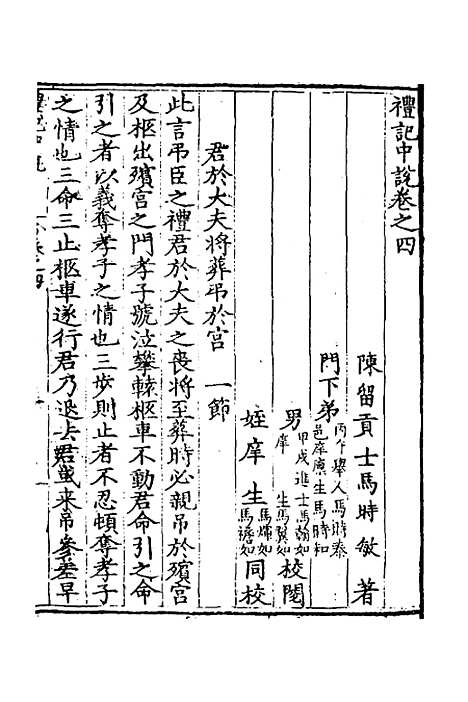 禮記中說卷之四
陳留貢士馬時敏著
門下弟丙午舉人馬時泰
邑庠廣生馬時和
男甲戌進士馬翰如
庠生馬翼如校閱
姪庠生馬燸如
馬襜如同校
君於大夫將葬弔於宮 一節
此言弔臣之禮君於大夫之喪將至葬時必親弔於殯宮
及柩出殯宮之門孝子號泣攀轅柩車不動君命引之命
引之者以義奪孝子之情也三步則止者不忍頓奪孝子
之情也三命三止柩車遂行君乃退去君或來弔參差早